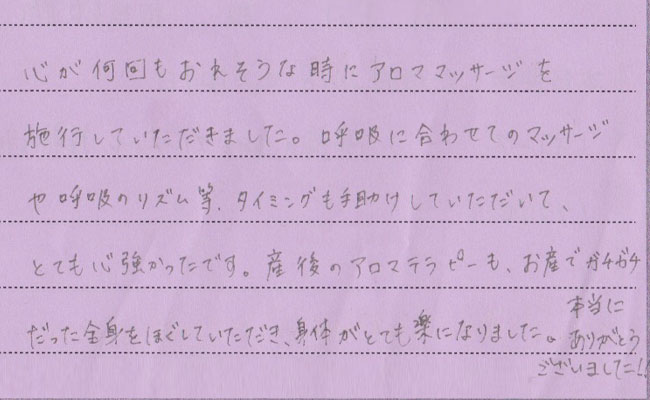 心が何回もおれそうな時にアロママッサージを
施行していただきました。呼吸に合わせてのマッサージ
や呼吸のリズム等、タイミングも手助けしていただいて、
とても心強かったです。産後のアロマテラピーも、お産でガチガチ
だった全身をほぐしていただき、身体がとても楽になりました。
本当に
ありがとう
ございました!!